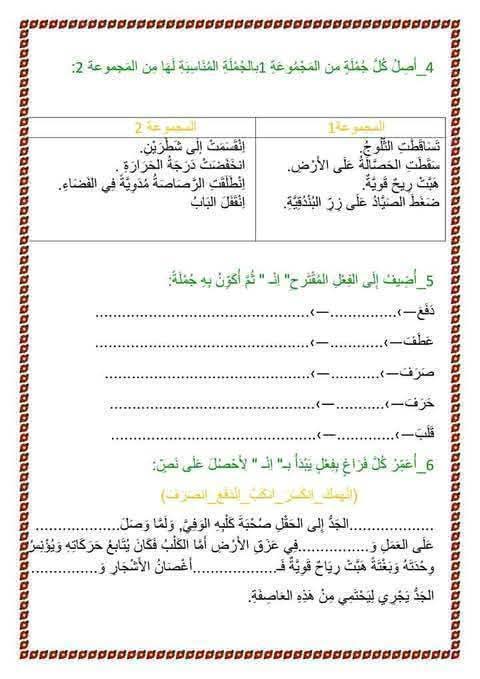 4_أَصِلُ كُلَّ جُمْلَةٍ من المَجْمُوعَةِ 1بالجُمْلَةِ المُنَاسِبَةِ لَهَا مِن المَجموعة 2:
المجموعة1
المجموعة 2
تَسَاقَطَتِ الثُّلُوجُ.
إِنْقَسَمَتْ إِلَى شَطْرَيْنِ.
سَقَطَتِ الحَصَّالَةُ عَلَى الأَرْضِ.
انخَفَضَتْ دَرَجَةُ الحَرَارَةِ .
هَبَّتْ رِيحٌ قَوِيَّةٌ.
إِنْطَلَقَتِ الرَّصَاصَةُ مُدَوِيَّةً فِي الفَضَاءِ.
ضَغَطَ الصَيَّادُ عَلَى زِرِّ البُنْدُقِيَّةِ.
اِنْقَفَلَ البَابُ
5_أُضِيفُ إِلَى الفِعْلِ المُقْتَرحِ" اِنْـ " ثُمَّ أُكَوِّنُ بِهِ جُمْلَةً:
دَفَعَ—›...............—›...............................................
عَطَفَ—›............—›...............................................
صَرَفَ—›...........—›.............................................
حَرَفَ—›...........—›.............................................
قَلَبَ—›.............—›............................................
6_أُعَمِّرُ كُلَّ فَرَاغٍ بِفِعْلٍ يَبْدَأُ بـ" اِنْـ " لِأَحْصُلَ عَلَى نَصٍّ:
(اِنْهِمَكَ_اِنكَسَرَ_انكَبَّ_اِنْدَفَعَ_انصَرَفَ)
...................الجَدُّ إِلى الحَقْلِ صُحْبَةَ كَلْبِهِ الوَفِيِّ, وَلَمَّا وَصَلَ...................
عَلَى العَمَلِ وَ................فِي عَزَقِ الأَرْضِ أَمَّا الكَلْبُ فَكَانَ يُتَابِعُ حَرَكَاتِهِ وَيُؤْنِسُ
وِحْدَتَهُ وَبَغْتَةً هَبَّتْ رِيَاحٌ قَوِيَّةٌ فَـ...................أَغْصَانُ الأَشْجَارِ وَ...............
الجَدُّ يَجْرِي لِيَحْتَمِي مِنْ هَذِهِ العَاصِفَةِ.